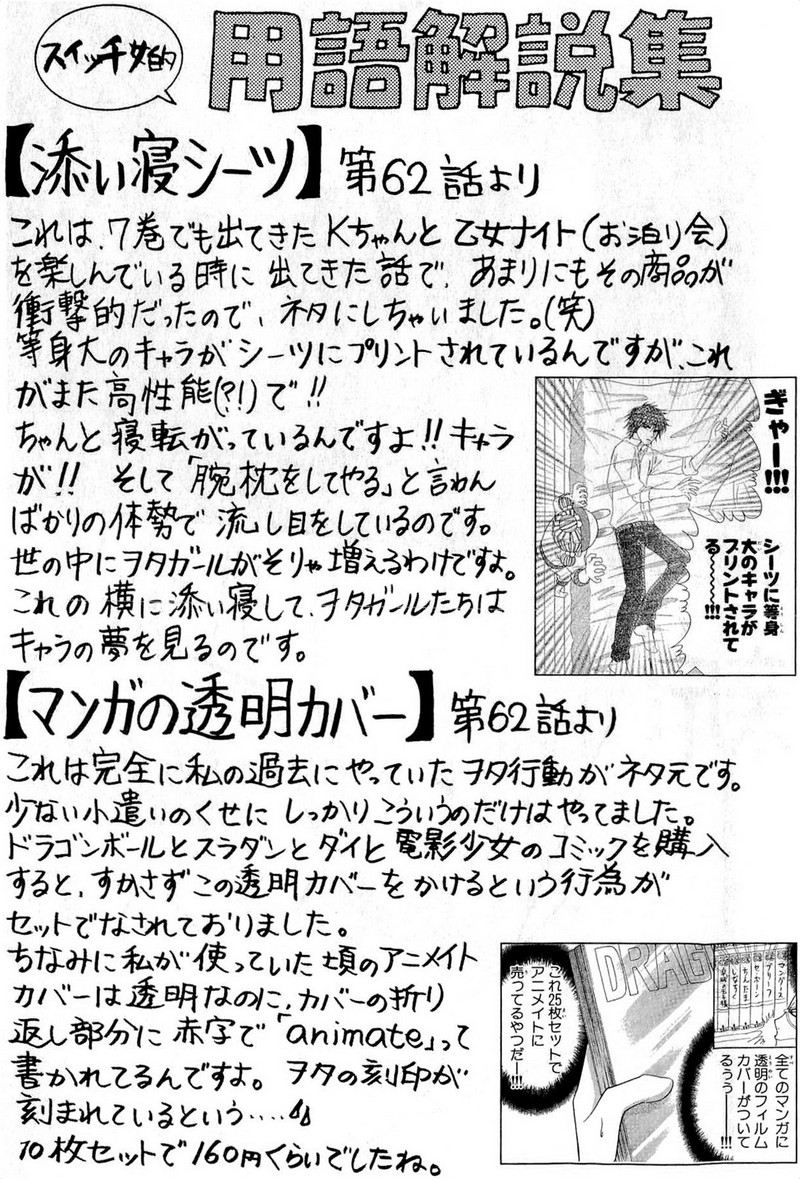 スイッチ女的
用語解説集
【添い寝シーツ】第62話より
これは、7巻でも出てきたKちゃんと乙女ナイト(お泊り会)
を楽しんでいる時に出てきた話で、あまりにもその商品が
衝撃的だったので、ネタにしちゃいました。(笑)
等身大のキャラがシーツにプリントされているんですが、これ
がまた高性能(?!)で!!
ちゃんと寝転がっているんですよ!!キャラ
が!! そして「腕枕をしてやる」と言わん
ばかりの体勢で流し目をしているのです。
世の中にヲタガールがそりゃ増えるわけですよ。
これの横に添い寝して、ヲタガールたちは
キャラの夢を見るのです。
ぎゃー!!!
シーツに等身
大のキャラが
プリントされて
る〜〜〜!!!
【マンガの透明カバー】第62話より
これは完全に私の過去にやっていたヲタ行動がネタ元です。
少ない小遣いのくせにしっかりこういうのだけはやってました。
ドラゴンボールとスラダンとダイと電影少女のコミックを購入
すると、すかさずこの透明カバーをかけるという行為が
セットでなされておりました。
ちなみに私が使っていた頃のアニメイト
カバーは透明なのに、カバーの折り
返し部分に赤字で「animate」って
書かれてるんですよ。ヲタの刻印が
刻まれているという‥‥
10枚セットで160円くらいでしたね。
全てのマンガに
透明のフィルム
カバーがついて
るぅぅ———!!!
DRAG
これ25枚セットで
アニメイトに
売ってるやつだー!!!